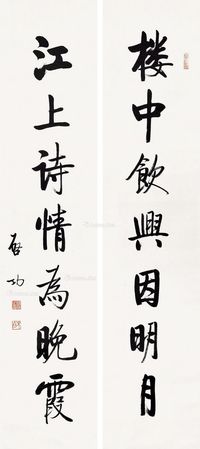 楼中飲興因明月
江上诗情為晚霞
启功